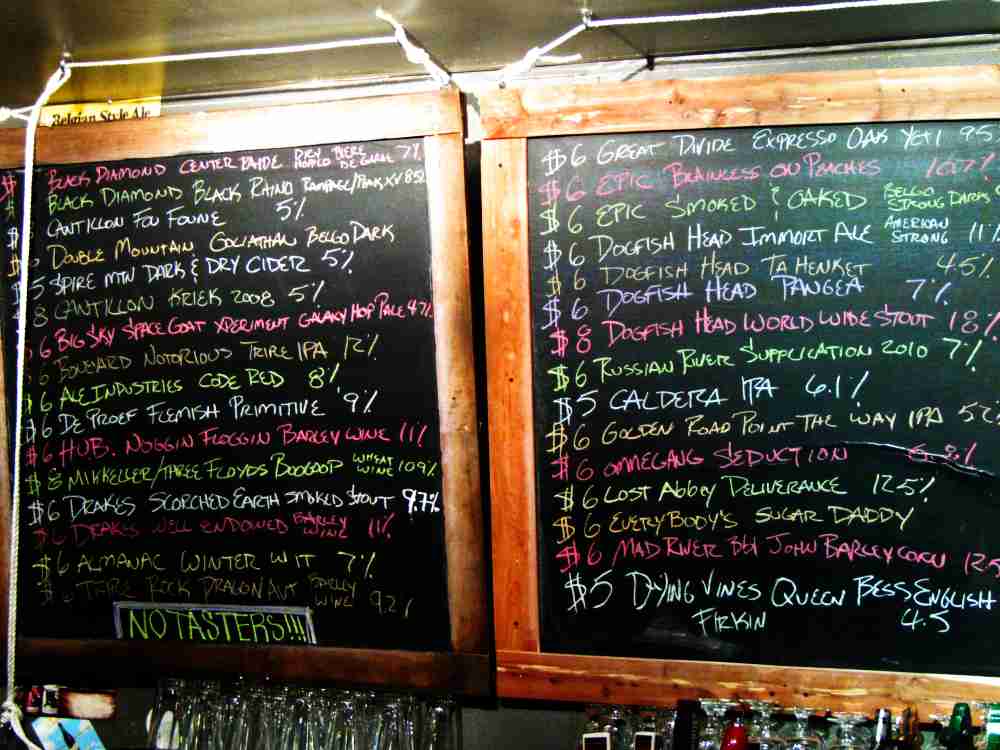 Belgian Style Ale
$ BLACK DIAMOND CENTER BRIDE BIERE DE 7%
$ BLACK DIAMOND BLACK RHINO RAMPAGE/ XV 8.5%
$ CANTILLON FOU FOUNE 5%
$ DOUBLE MOUNTAIN GOLIATHAN BELGO DARK
$5 SPIRE MTN DARK & DRY CIDER 5%
8 CANTILLON KRIEK 2008 5%
6 BIG SKY SPACE GOAT XPERIMENT GALAXY HOP PALE 4.7%
6 BOUEVARD NOTORIOUS TRIRE IPA 12%
$6 ALE INDUSTRIES CODE RED 8%
$6 DE PROEF FLEMISH PRIMITIVE 9%
$6 HUB. NOGGIN FLOGGIN BARLEY WINE 11%
$8 MIKKELLER/THREE FLOYDS BOOGOOP WHEAT WINE 10.9%
$6 DRAKES SCORCHED EARTH SMOKED STOUT 9.7%
$6 DRAKES WELL ENDOWED BARLEY WINE 11%
$6 ALMANAC WINTER WIT 7%
$6 ROCK DRAGONAUT BARLEY WINE 9.2%
NO TASTERS!!!
$6 GREAT DIVIDE EXPRESSO OAK YETI 9.5
$6 EPIC BRAINLESS ON PEACHES 10.7%
$6 EPIC SMOKED & OAKED BELGO STRONG DARK
$6 DOGFISH HEAD IMMORT ALE AMERICAN STRONG 11%
$6 DOGFISH HEAD TA HENKET 4.5%
$6 DOGFISH HEAD PANGEA 7%
$8 DOGFISH HEAD WORLD WIDE STOUT 18%
$6 RUSSIAN RIVER SUPPLICATION 2010 7%
$5 CALDERA IPA 6.1%
$6 GOLDEN ROAD POINT THE WAY IPA 5.2
$6 OMMEGANG SEDUCTION 6.8%
$6 LOST ABBEY DELIVERANCE 12.5%
$6 EVERYBODY'S SUGAR DADDY
$6 MAD RIVER JOHN BARLEYCORN 12.5
$5 DYING VINES QUEEN BESS ENGLISH
FIRKIN 4.5